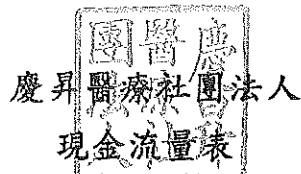 慶昇醫療社團法人
現金流量表